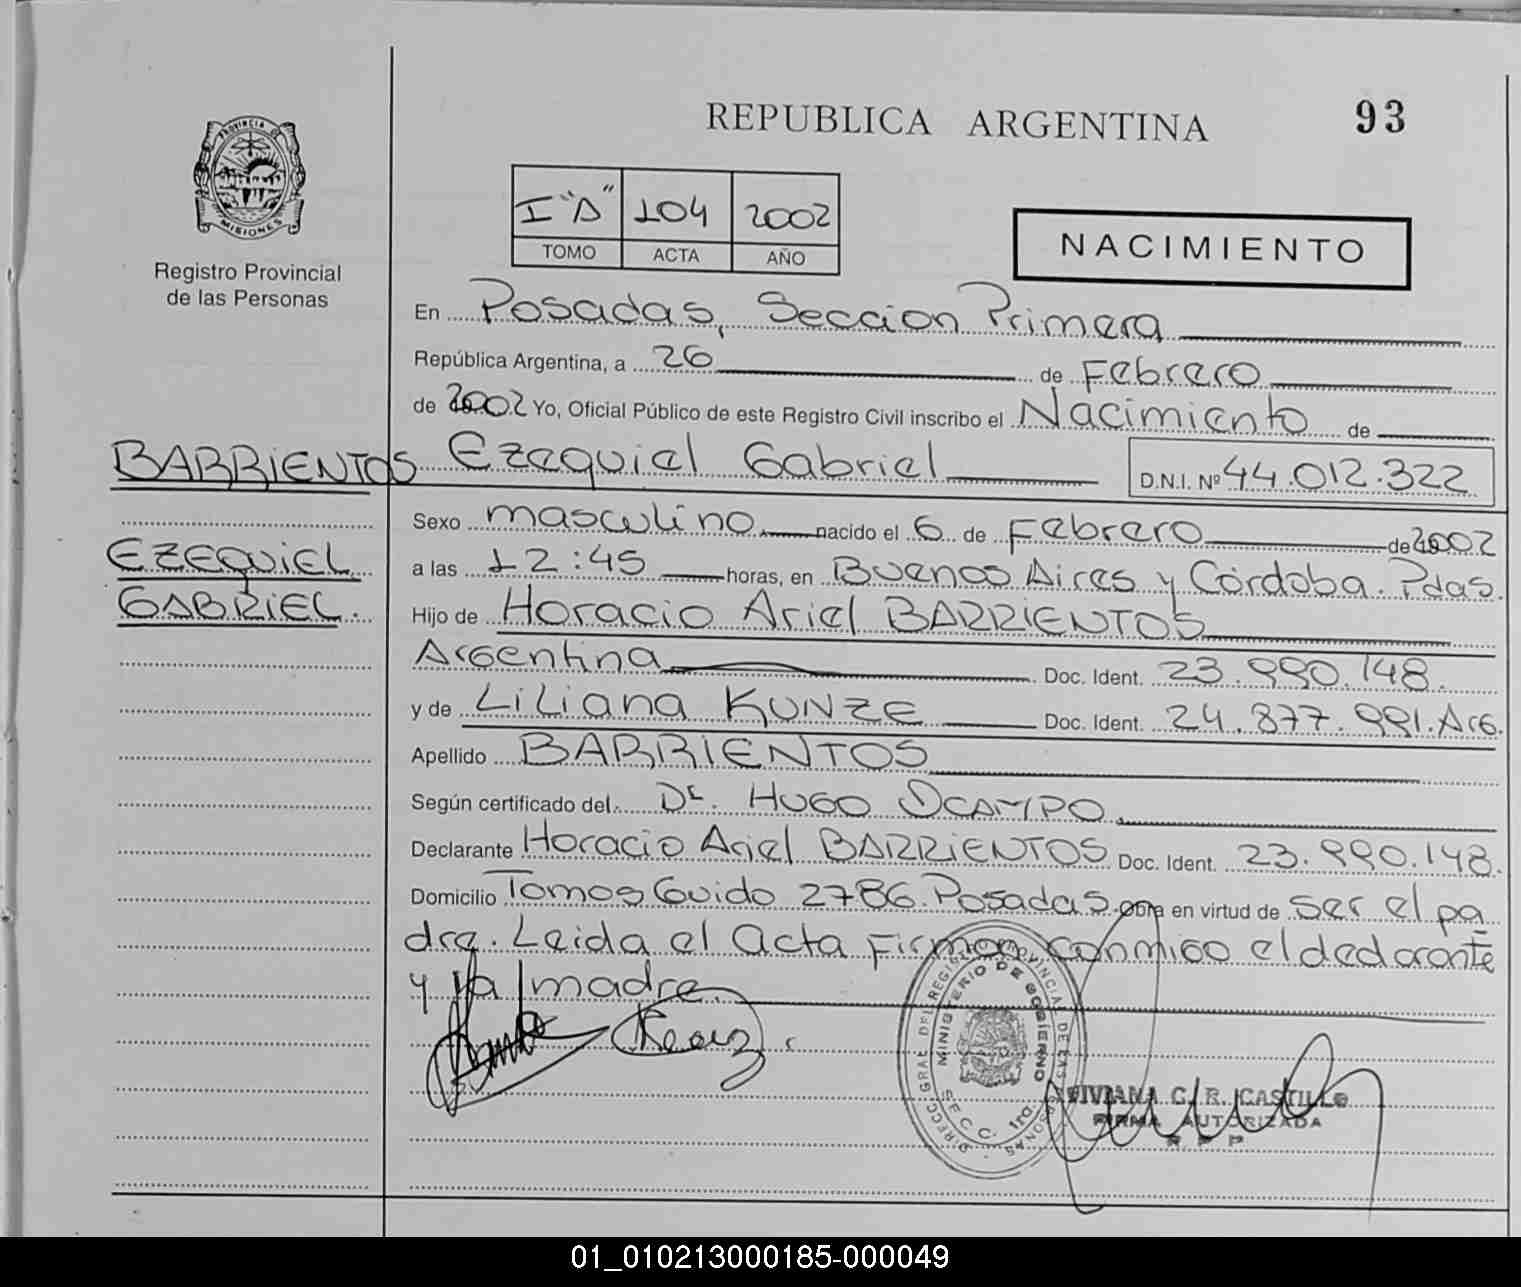 REPUBLICA ARGENTINA
93
PROVINCIA DE
MISIONES
Registro Provincial
de las Personas
I "A" 104 2002
TOMO ACTA AÑO
NACIMIENTO
En Posadas, Seccion Primera
República Argentina, a 26 de Febrero
de 2002 Yo, Oficial Público de este Registro Civil inscribo el Nacimiento de
BARRIENTOS Ezequiel Gabriel D.N.I. Nº 44.012.322
Sexo masculino nacido el 6 de Febrero de 2002
EZEQUIEL
a las 12:45 horas, en Buenos Aires y Córdoba. Pdas.
GABRIEL.
Hijo de Horacio Ariel BARRIENTOS
Argentina Doc. Ident. 23.990.148.
y de Liliana KUNZE Doc. Ident. 24.877.991. Arg.
Apellido BARRIENTOS
Según certificado del Dr. HUGO OCAMPO
Declarante Horacio Ariel BARRIENTOS Doc. Ident. 23.990.148.
Domicilio Tomos Guido 2786 Posadas obra en virtud de ser el pa
dre. Leida el acta Firman conmigo el declarante
y la madre.
MINISTERIO DE GOBIERNO
SECC. 1ra.
VIVIANA C. R. CASTILLO
FIRMA AUTORIZADA
R P P
01_010213000185-000049